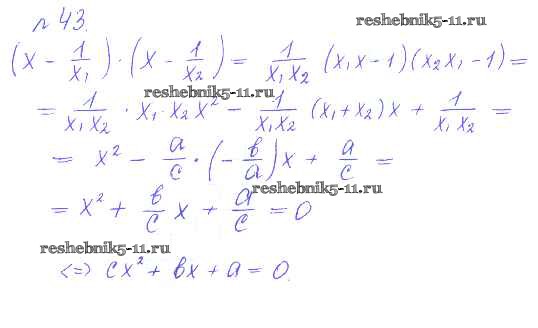 № 43. reshebnik5-11.ru
(x - 1/x₁) · (x - 1/x₂) = 1/x₁x₂ (x₁x - 1)(x₂x₁ - 1) =
reshebnik5-11.ru
= 1/x₁x₂ · x₁ · x₂x² - 1/x₁x₂ (x₁ + x₂)x + 1/x₁x₂ =
= x² - a/c · (-b/a)x + a/c =
reshebnik5-11.ru
= x² + b/c x + a/c = 0
reshebnik5-11.ru
<=> cx² + bx + a = 0.